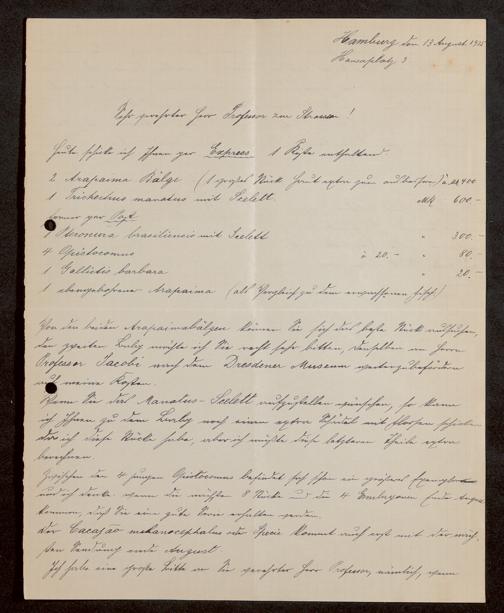 Hamburg den 13 August 1925
Hansaplatz 3
Sehr verehrter Herr Professor zur Strassen!
Heute schickte ich Ihnen per Express 1 Kiste enthaltend
2 Arapaima Bälge (1 grosses Stück Haut extra zum à M 400
1 Trichechus manatus mit Scelett. Mk 600.-
ferner per Post
1 Pteronura brasiliensis mit Scelett " 300.-
4 Opistocomus à 20.- " 80.-
1 Gallictis barbara " 20.-
1 ebengeborener Arapaima (als Vergleich zu dem erwachsenen Fisch)
Von den beiden Arapaimabälgen können Sie sich das beste Stück aussuchen,
den zweiten Balg möchte ich Sie recht sehr bitten, denselben an Herrn
Professor Jacobi nach dem Dresdener Museum weiterzubefördern
auf meine Kosten.
Wenn Sie das Manatus-Scelett aufzustellen wünschen, so kann
ich Ihnen zu dem Balg noch einen extra Schädel mit Flossen schicken
da ich diese Stücke habe, aber ich müsste diese letzteren Theile extra
berechnen.
Zwischen den 4 jungen Opistocomus befindet sich schon ein grösseres Exemplar
und ich denke wenn die nächsten 8 Stücke und die 4 Embryonen Ende August
kommen, dass Sie eine gute Serie erhalten werden.
Der Cacajao melanocephalus Specie kommt auch erst mit der näch-
sten Sendung ende August
Ich habe eine grosse Bitte an Sie verehrter Herr Professor, nämlich, wenn